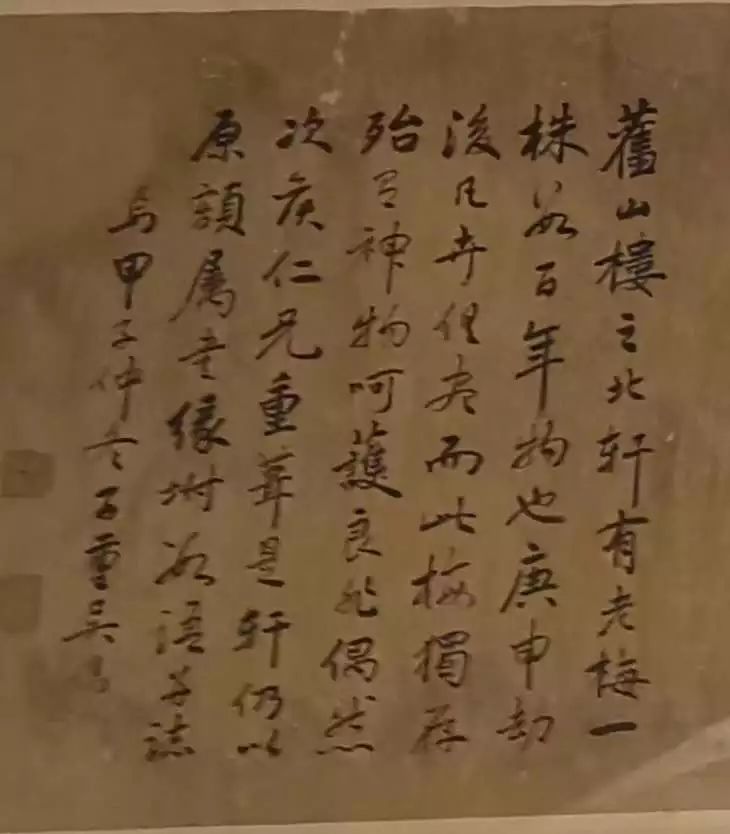 舊山樓之北軒有老梅一
株數百年物也庚申劫
後凡卉俱盡而此梅獨存
殆有神物呵護良非偶然
次侯仁兄重葺是軒仍以
原額属書緣坿數語以誌
甲子仲冬子重吳